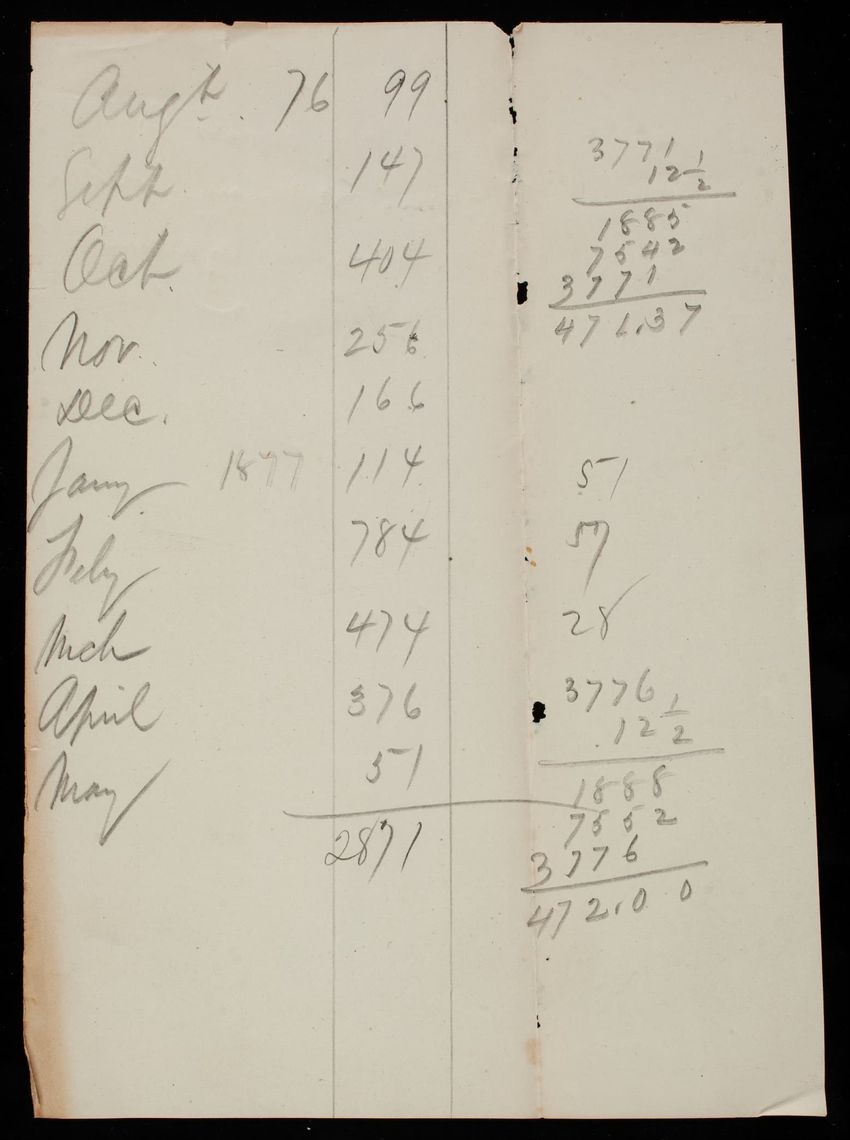 Augt. 76 99
Sept. 147
Oct. 404
Nov. 256
Dec. 166
Jany 1877 114
Feby 784
Mch 474
April 376
May 51
2871
3771
12 1/2
1885
7542
3771
471.37
51
57
28
3776
12 1/2
1888
7552
3776
472.00